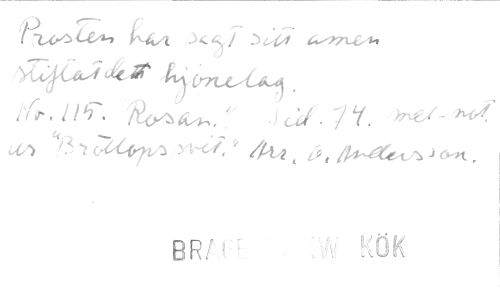 Prosten har sagt sitt amen
stiftat det hjonelag.
No. 115. "Rosan." Sid. 74. mel-not.
ur "Bröllopssvit." Arr. O. Andersson.
BRAGE KÖK